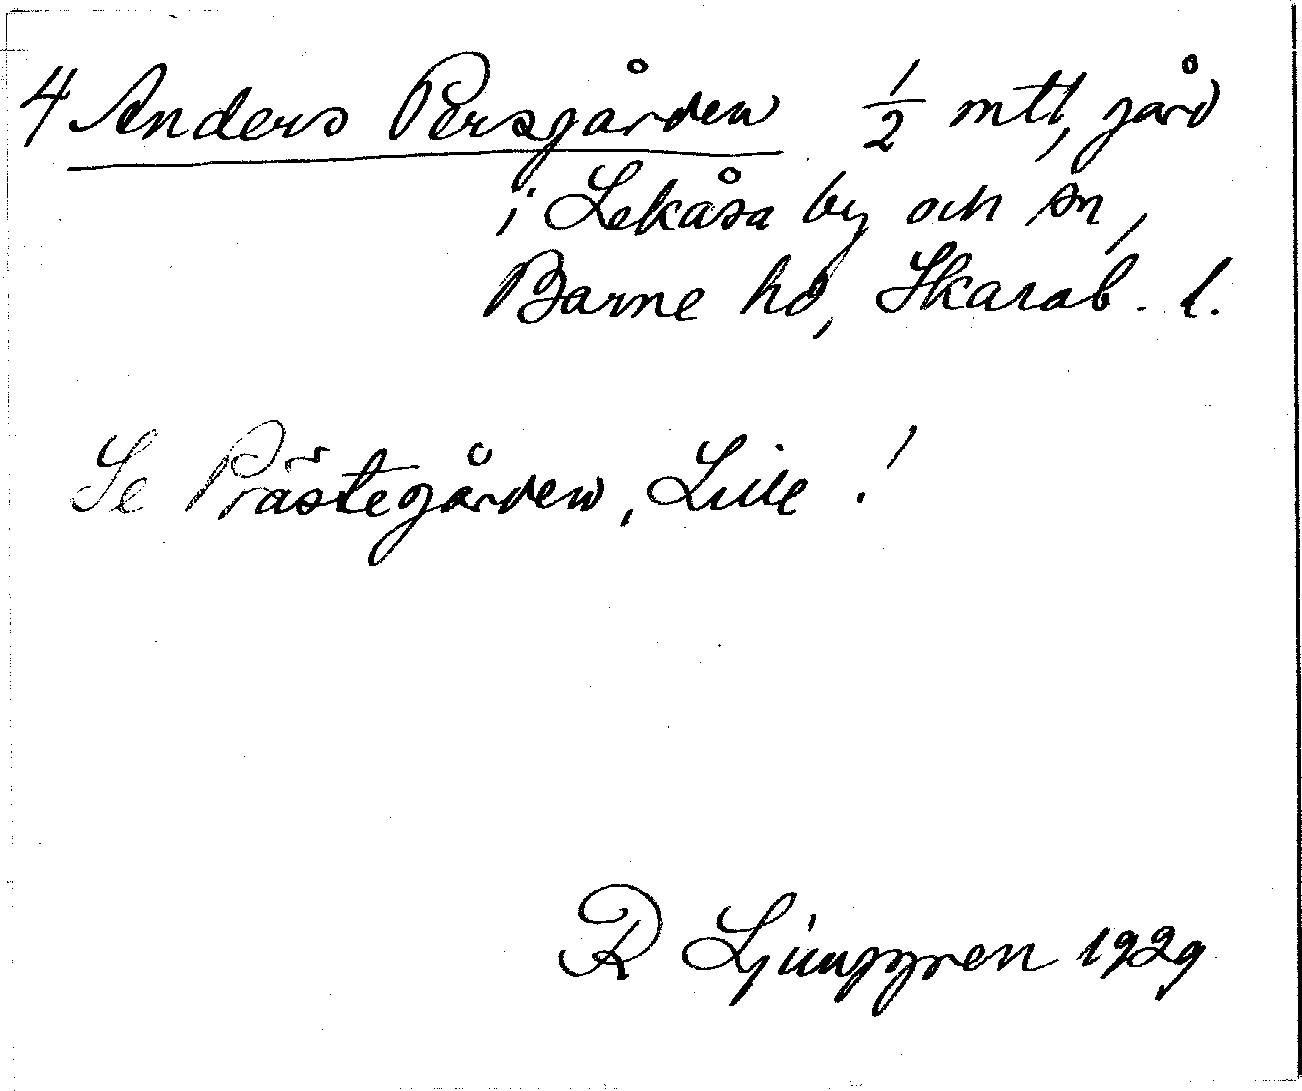 4 Anders Persgården 1/2 mtl, gård
i Lekåsa by och sn,
Barne hd, Skarab. l.
Se Prästegården, Lille!
R Ljunggren 1929